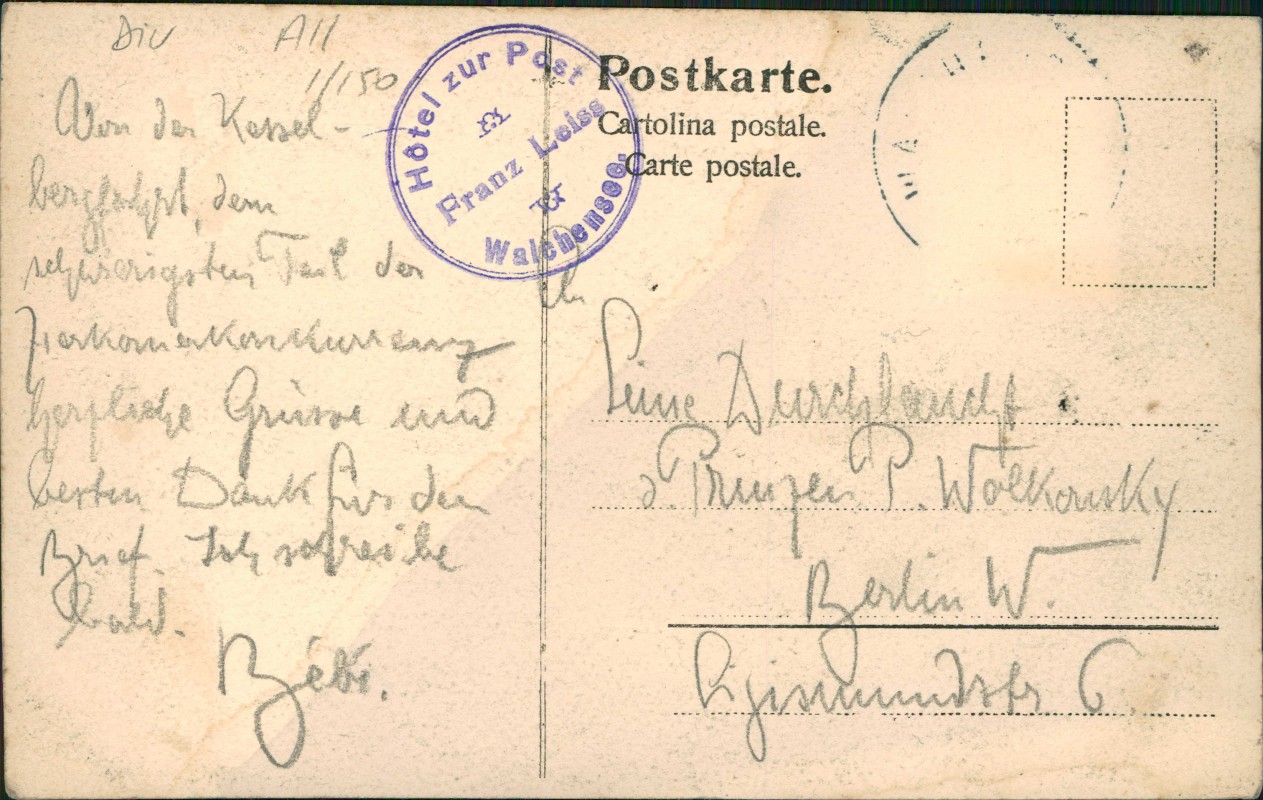 Div All
1/150
Von der Kessel-
bergfahrt, dem
schwierigsten Teil der
Herkomerkonkurrenz
herzliche Grüsse und
besten Dank für den
Brief. Ich schreibe
bald.
Bébé.
Hôtel zur Post
Franz Leiss
Walchensee.
Postkarte.
Cartolina postale.
Carte postale.
WA
An
Seine Durchlaucht
d. Prinzen P. Wolkonsky
Berlin W.
Sigismundstr 6.